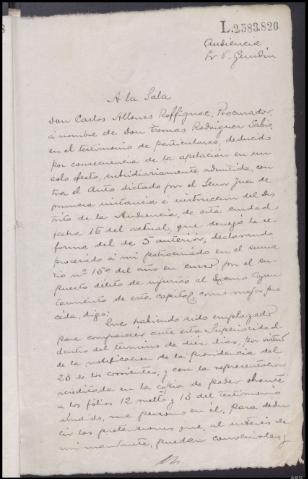 L.2383.820
Audiencia
A la Sala
Don Carlos Alfonso Roffignac, Procurador,
á nombre de Don Tomas Rodriguez Sabio,
en el testimonio de particulares, deducido
por consecuencia de la apelacion en un
solo efecto, subsidiariamente admitida, con-
tra el Auto dictado por el Señor Juez de
primera instancia é instruccion del Dis-
trito de la Audiencia, de esta ciudad
fecha 16 del actual, que denegó la re-
forma del de 5 anterior, declarando
procesado á mi patrocinado en el suma-
rio nº 150 del año en curso, por el su-
puesto delito de injurias al Excmo Ayun-
tamiento de esta capital, como mejor pro-
ceda, digo:
Que habiendo sido emplazado
para comparecer ante esta Superioridad
dentro del término de diez dias, por virtud
de la notificacion de la providencia del
28 de los corrientes, y con la representacion
acreditada en la copia de poder obrante
a los folios 12 vuelto y 13 del testimonio
aludido, me persono en él, para dedu-
cir las pretensiones que, al interes de
mi mandante, puedan convenirle; y